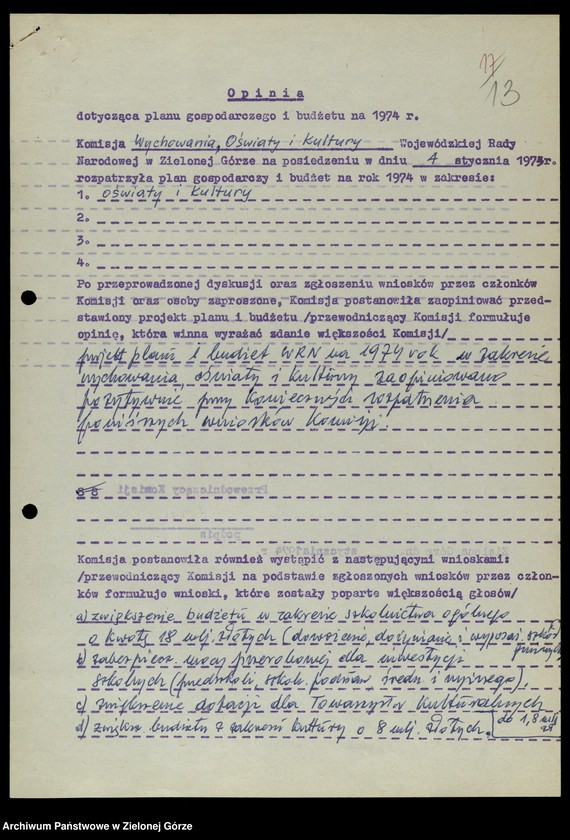 17
13
Opinia
dotycząca planu gospodarczego i budżetu na 1974 r.
Komisja Wychowania, Oświaty i Kultury Wojewódzkiej Rady
Narodowej w Zielonej Górze na posiedzeniu w dniu 4 stycznia 1974r.
rozpatrzyła plan gospodarczy i budżet na rok 1974 w zakresie:
1. oświaty i kultury
2.
3.
4.
Po przeprowadzonej dyskusji oraz zgłoszeniu wniosków przez członków
Komisji oraz osoby zaproszone, Komisja postanowiła zaopiniować przed-
stawiony projekt planu i budżetu /przewodniczący Komisji formułuje
opinię, która winna wyrażać zdanie większości Komisji/
projekt planu i budżet WRN na 1974 rok w zakresie
wychowania, oświaty i kultury zaopiniowano
pozytywnie przy koniecznych rozpatrzenia
poniższych wniosków Komisji.
Przewodniczący Komisji
podpis
Zielona Góra dn. stycznia 1974 r
Komisja postanowiła również wystąpić z następującymi wnioskami:
/przewodniczący Komisji na podstawie zgłoszonych wniosków przez człon-
ków formułuje wnioski, które zostały poparte większością głosów/
a) zwiększenie budżetu w zakresie szkolnictwa ogólnego
o kwotę 18 mlj. złotych (dowożenie, dożywianie i wyposaż. szkół
b) zabezpiecz. mocy przerobowej dla inwestycji
szkolnych (przedszkoli, szkół podstaw. średn. i wyższego).
c) zwiększenie dotacji dla Towarzystw Kulturalnych
do 1,8 mlj zł
d) zwiększ. budżetu z zakresu kultury o 8 mlj. złotych.
Archiwum Państwowe w Zielonej Górze